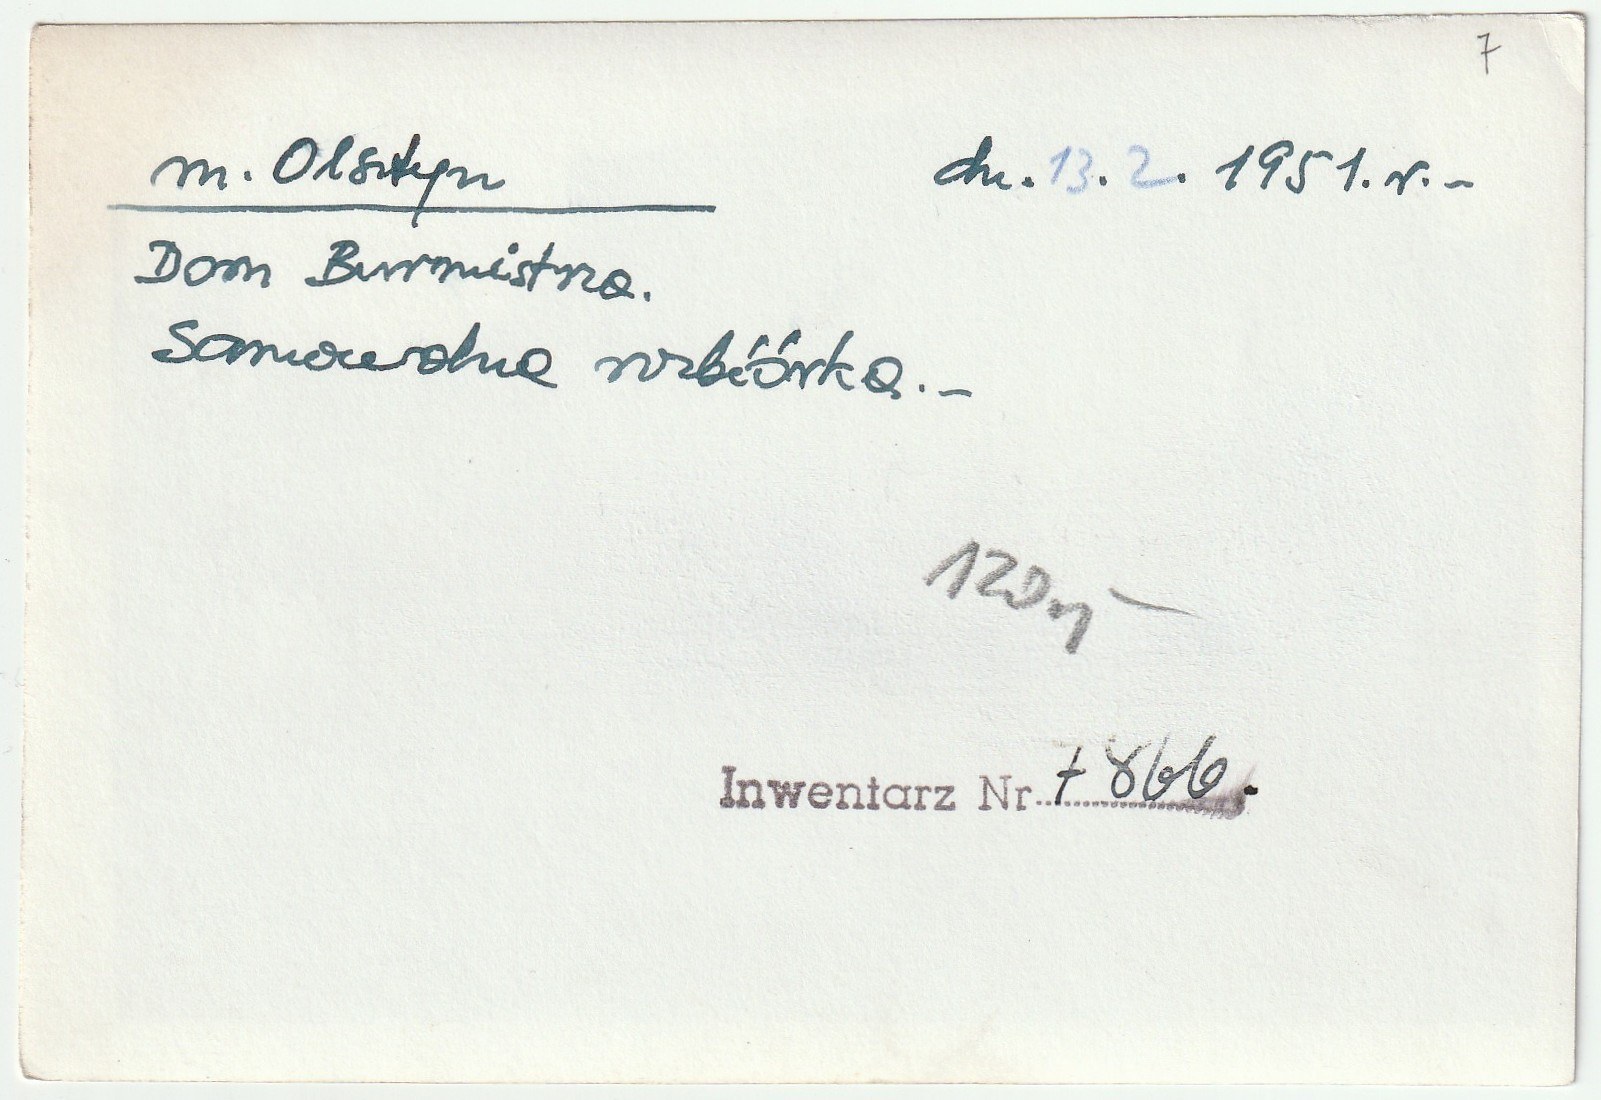 7
m. Olsztyn
dn. 13. 2. 1951. r. -
Dom Burmistrza.
Samowolna rozbiórka. -
Inwentarz Nr 7866.